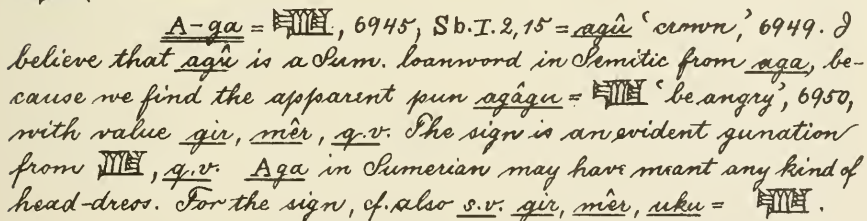 A-ga = , 6945, Sb. I. 2, 15 = agû ‘crown,’ 6949. I
believe that agû is a Sum. loanword in Semitic from aga, be-
cause we find the apparent pun agâgu = ‘be angry’, 6950,
with value gir, mêr, q.v. The sign is an evident gunation
from , q.v. Aga in Sumerian may have meant any kind of
head-dress. For the sign, cf. also s.v. gir, mêr, uku = .